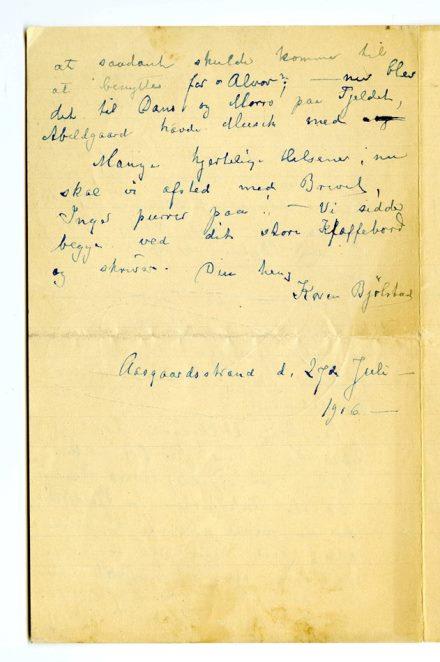 at saadant skulde komme til
at benyttes for "Alvor"; — nu blev
det til Dans og Morro paa Fjeldet,
Abildgaard havde Musik med
Mange hjertelige Hilsener; nu
skal vi afsted med Brevet,
Inger purrer paa! — Vi sidder
begge ved dit store Kaffebord
og skriver. Din heng
Karen Bjølstad
Aasgaardsstrand d. 27de Juli —
1916 —